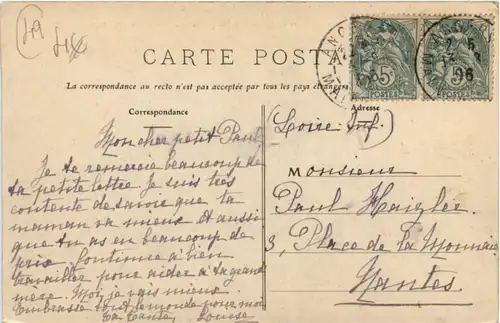 CARTE POSTA
La correspondance au recto n'est pas acceptée par tous les pays étrangers
Correspondance
Adresse
Mon cher petit Paul
Je te remercie beaucoup de
ta petite lettre. Je suis très
contente de savoir que ta
maman va mieux et aussi
que tu as eu beaucoup de
prix. Continue à bien
travailler pour aider à ta grand
mère. Moi, je vais mieux.
Embrasse tout le monde pour moi
Ta tante, Louise
(Loire Inf.)
Monsieur
Paul Haizlée
3, Place de la Monnaie
Nantes.
5c
POSTES
5c
POSTES
ANC
2 5
06